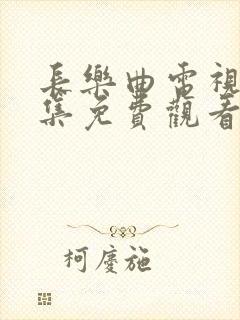 長樂曲電視
集免費觀看
柯慶施